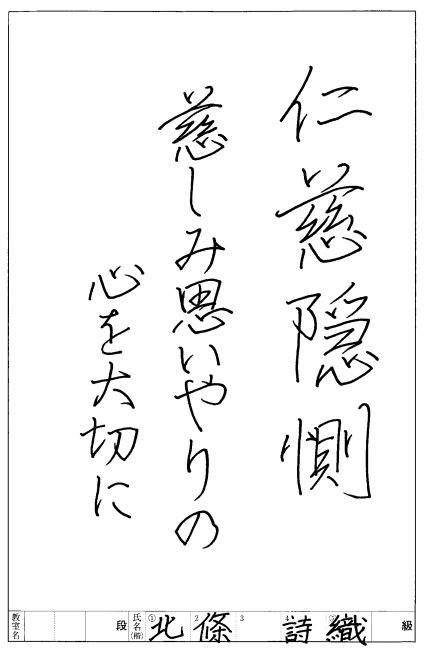 仁慈隠惻
慈しみ思いやりの
心を大切に
教室名 段 氏名(楷) ① 北 2 條 3 詩 織 級